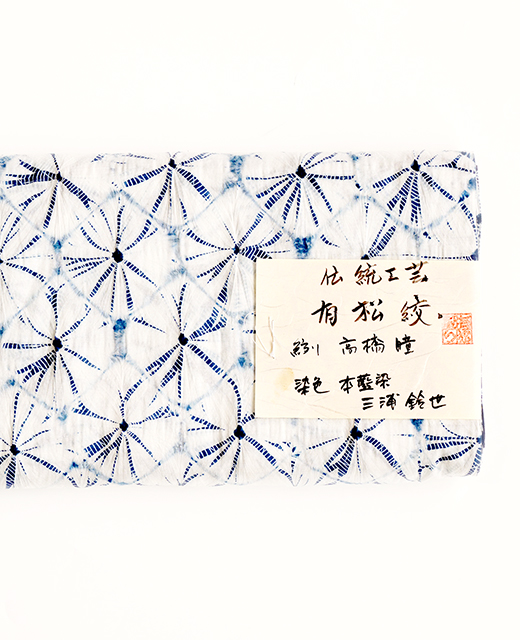 伝統工芸
有松絞
絞り 高橋 瞳
染色 本藍染
三浦 鈴世